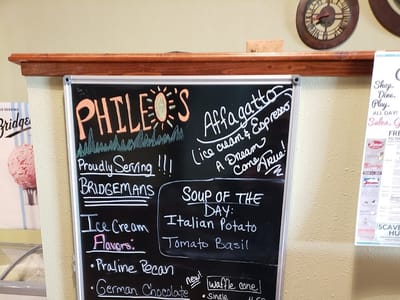 PHILEO'S
Affagatto
Ice cream & Espresso
A Dream
Come True!
Proudly Serving !!!
BRIDGEMANS
SOUP OF THE
DAY:
Italian Potato
Tomato Basil
Ice Cream
Flavors:
• Praline Pecan
• German Chocolate
new!
Waffle cone!
Single
Bridge
Shop.
Dine.
Play.
ALL DAY!
FRE
SCAVE
HU